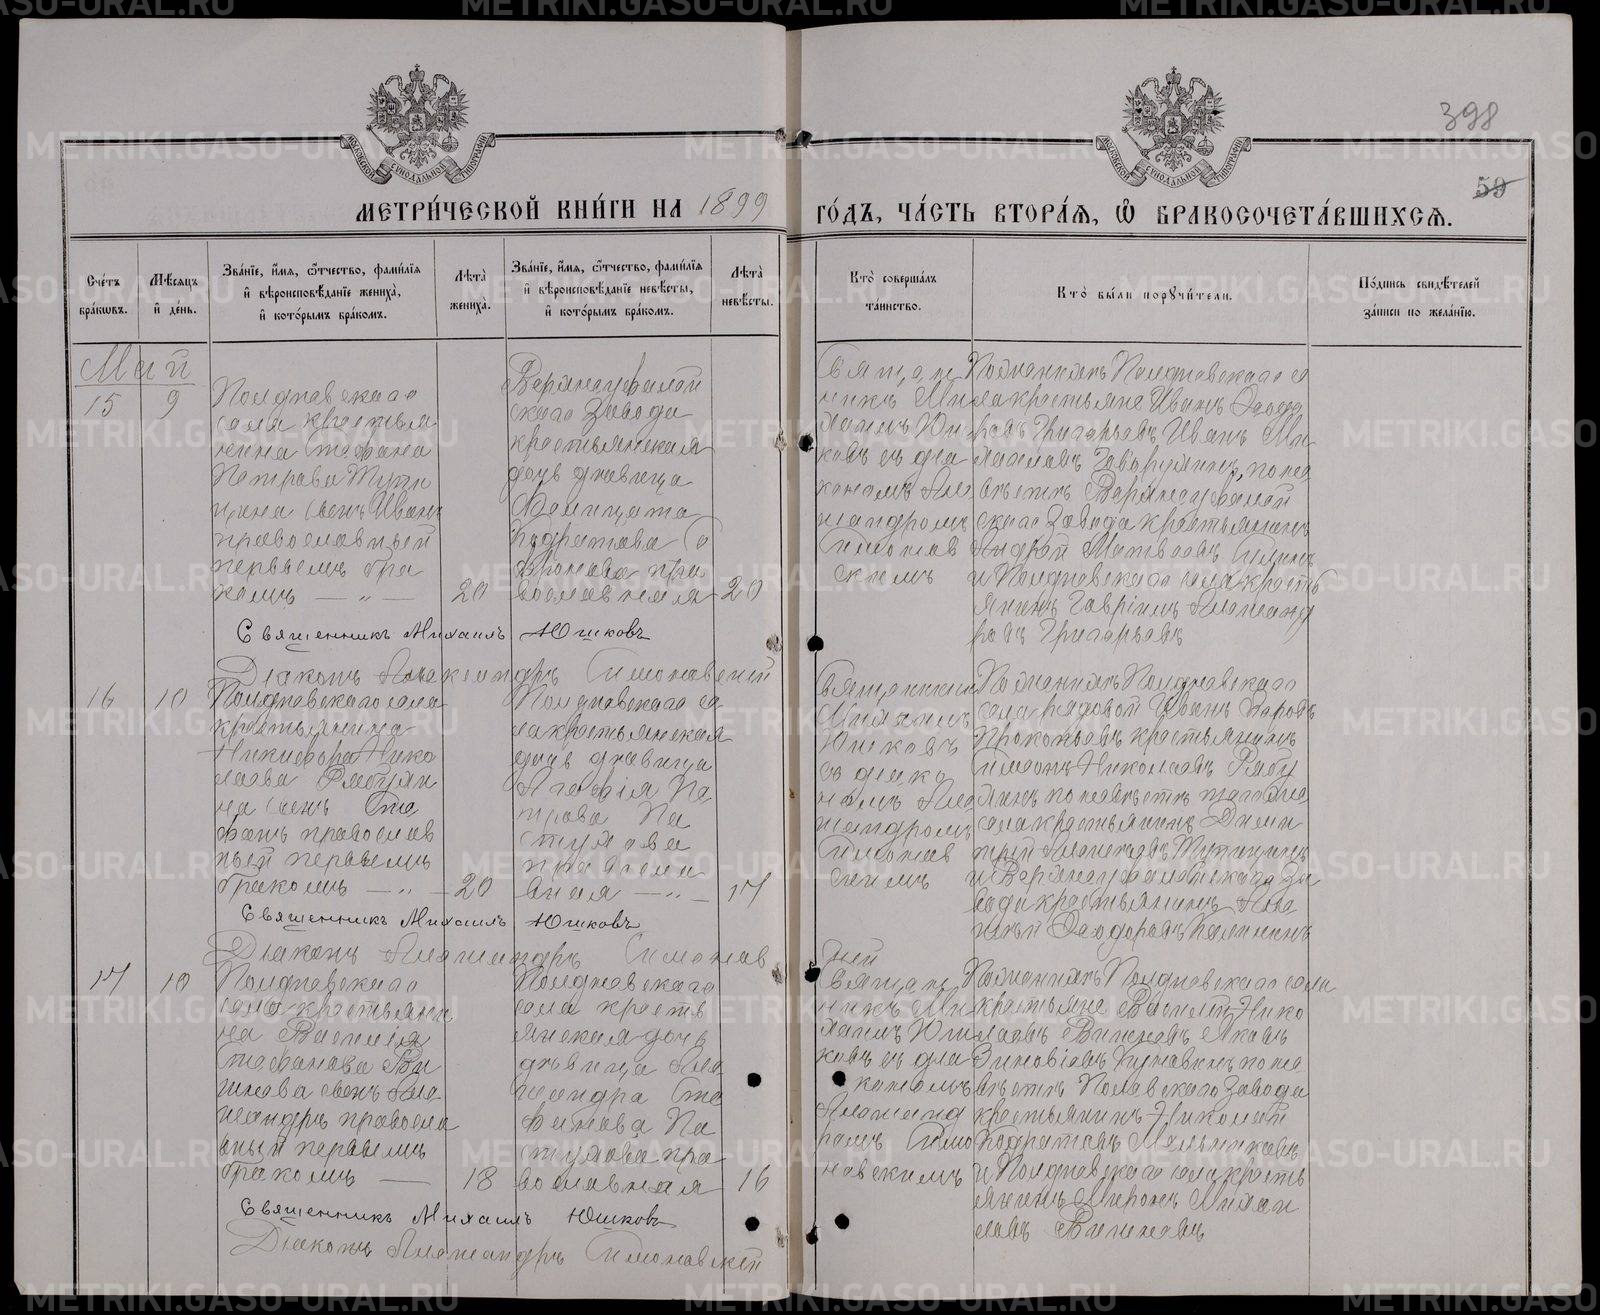 398
59
МОСКОВСКОЙ СѴНОДАЛЬНОЙ ТИПОГРАФІИ
МОСКОВСКОЙ СѴНОДАЛЬНОЙ ТИПОГРАФІИ
МЕТРИ́ЧЕСКОЙ КНИ́ГИ НА 1899 ГО́ДЪ, ЧА́СТЬ ВТОРА́Ѧ, Ѡ҆ БРАКОСОЧЕТА́ВШИХСѦ.
Сче́тъ
бра́кѡвъ.
Мѣ́сяцъ
и҆ де́нь.
Зва́нїе, и҆́мя, ѻ҆́тчество, фами́лїя
и҆ вѣроисповѣ́данїе жениха̀,
и҆ кото́рымъ бра́комъ.
Лѣта̀
жениха̀.
Зва́нїе, и҆́мя, ѻ҆́тчество, фами́лїя
и҆ вѣроисповѣ́данїе невѣ́сты,
и҆ кото́рымъ бра́комъ.
Лѣта̀
невѣ́сты.
Кто̀ соверша́лъ
та́инство.
Кто̀ бы́ли поручи́тели.
По́дпись свидѣ́телей
за́писи по жела́нїю.
Май
15
9
Полдневскаго
села крестья
нина Стефана
Петрова Тупи
цына сынъ Иванъ
православный
первымъ бра
комъ — „ —
20
Верхнеуфалей
скаго Завода
крестьянская
дочь дѣвица
Кодратова
православная
20
Священ
никъ Ми
хаилъ Юш
ковъ съ діа
кономъ Але
ксандромъ
Симонов
скимъ
По женихѣ Полдневскаго се
ла крестьяне Иванъ Ѳедо
ровъ Григорьевъ Иванъ Ми
хайловъ, по не
вѣстѣ Верхнеуфалей
скаго Завода крестьянинъ
Андрей Матвѣевъ
и Полдневскаго села кресть
янинъ Гавріилъ Александ
ровъ Григорьевъ
Священникъ Михаилъ Юшковъ
Діаконъ Александръ Симоновскій
16
10
Полдневскаго села
крестьянина
Никифора Нико
лаева
на сынъ Сте
фанъ православ
ный первымъ
бракомъ — „ —
20
Полдневскаго се
ла крестьянская
дочь дѣвица
Агафія Пе
трова Па
стухова
правосла
вная — „ —
17
Священникъ
Михаилъ
Юшковъ
съ діако
номъ Але
ксандромъ
Симонов
скимъ
По женихѣ Полдневскаго
села рядовой Иванъ Карповъ
Прокопьевъ крестьянинъ
Симеонъ Николаевъ
по невѣстѣ того же
села крестьянинъ Дими
трій Алексѣевъ Тупицынъ
и Верхнеуфалейскаго За
вода крестьянинъ Але
ксѣй Ѳеодоровъ Калининъ
Священникъ Михаилъ Юшковъ
Діаконъ Александръ Симонов
скій
17
10
Полдневскаго
села крестьяни
на Василія
Стефанова Ви
шнева сынъ Але
ксандръ правосла
вный первымъ
бракомъ —
18
Полдневскаго
села кресть
янская дочь
дѣвица Але
ксандра Сте
фанова Па
стухова пра
вославная
16
Священ
никъ Ми
хаилъ Юш
ковъ съ діа
кономъ
Александ
ромъ Симо
новскимъ
По женихѣ Полдневскаго села
крестьяне Василій Нико
лаевъ Вишневъ Яковъ
Зиновіевъ по не
вѣстѣ Полевскаго Завода
крестьянинъ Николай
Кодратовъ Мельниковъ
и Полдневскаго села кресть
янинъ Миронъ Михай
ловъ Вишневъ
Священникъ Михаилъ Юшковъ
Діаконъ Александръ Симоновскій
METRIKI.GASO-URAL.RU